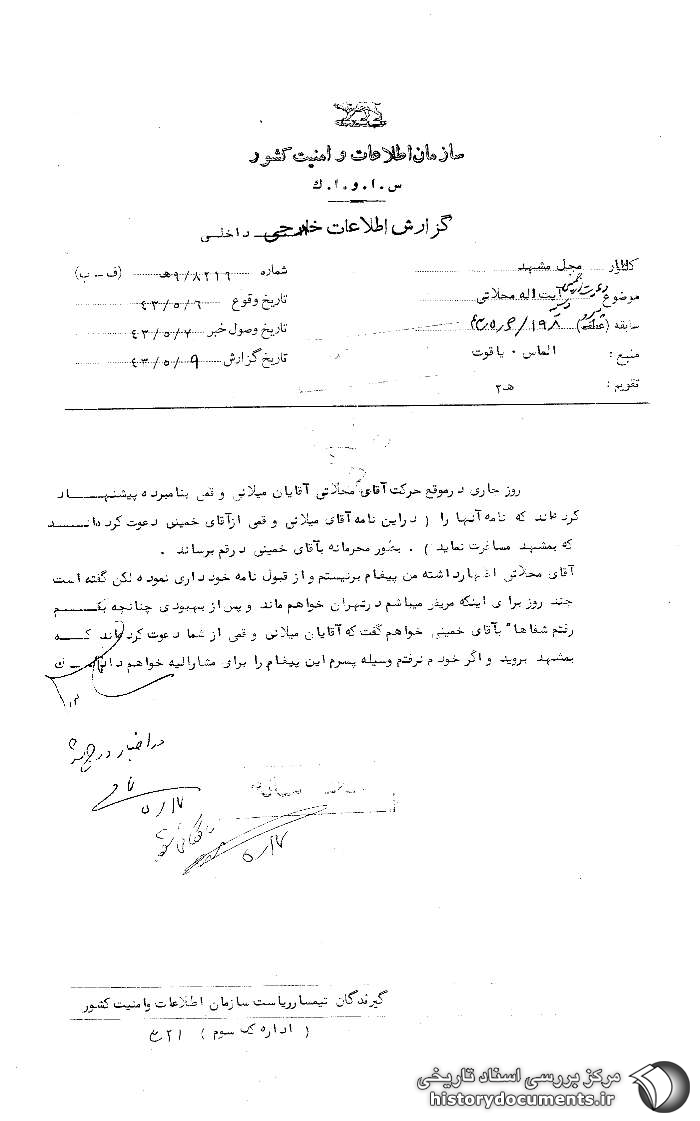 سازمان اطلاعات و امنیت کشور
س.ا.و.ا.ک
گزارش اطلاعات خارجی داخلی
محل مشهد
موضوع آیت اله محلاتی
سابقه
منبع : الماس . یاقوت
تقویم : هـ۲
شماره ۹/۸۲۱۶هـ (ف-ب)
تاریخ وقوع ۴۳/۵/۶
تاریخ وصول خبر ۴۳/۵/۷
تاریخ گزارش ۴۳/۵/۹
روز جاری درموقع حرکت آقای محلاتی آقایان میلانی و قمی بنامبرده پیشنهاد
کرده‌اند که نامه آنها را ( دراین نامه آقای میلانی و قمی ازآقای خمینی دعوت کرده‌اند
که بمشهد مسافرت نماید ) . بطور محرمانه بآقای خمینی درقم برساند .
آقای محلاتی اظهارداشته من پیغام برنیستم و از قبول نامه خود داری نموده لکن گفته است
چند روز برای اینکه مریض میباشم درتهران خواهم ماند و پس از بهبودی چنانچه بقم
رفتم شفاها" بآقای خمینی خواهم گفت که آقایان میلانی و قمی از شما دعوت کرده‌اند که
بمشهد بروید و اگر خودم نرفتم وسیله پسرم این پیغام را برای مشارالیه خواهم داد
در اخبار درج شد
۵/۱۷
بایگانی شود
۵/۱۷
گیرندگان تیمسار ریاست سازمان اطلاعات وامنیت کشور
( اداره یک سوم ) ۲۱
مرکز بررسی اسناد تاریخی
historydocuments.ir